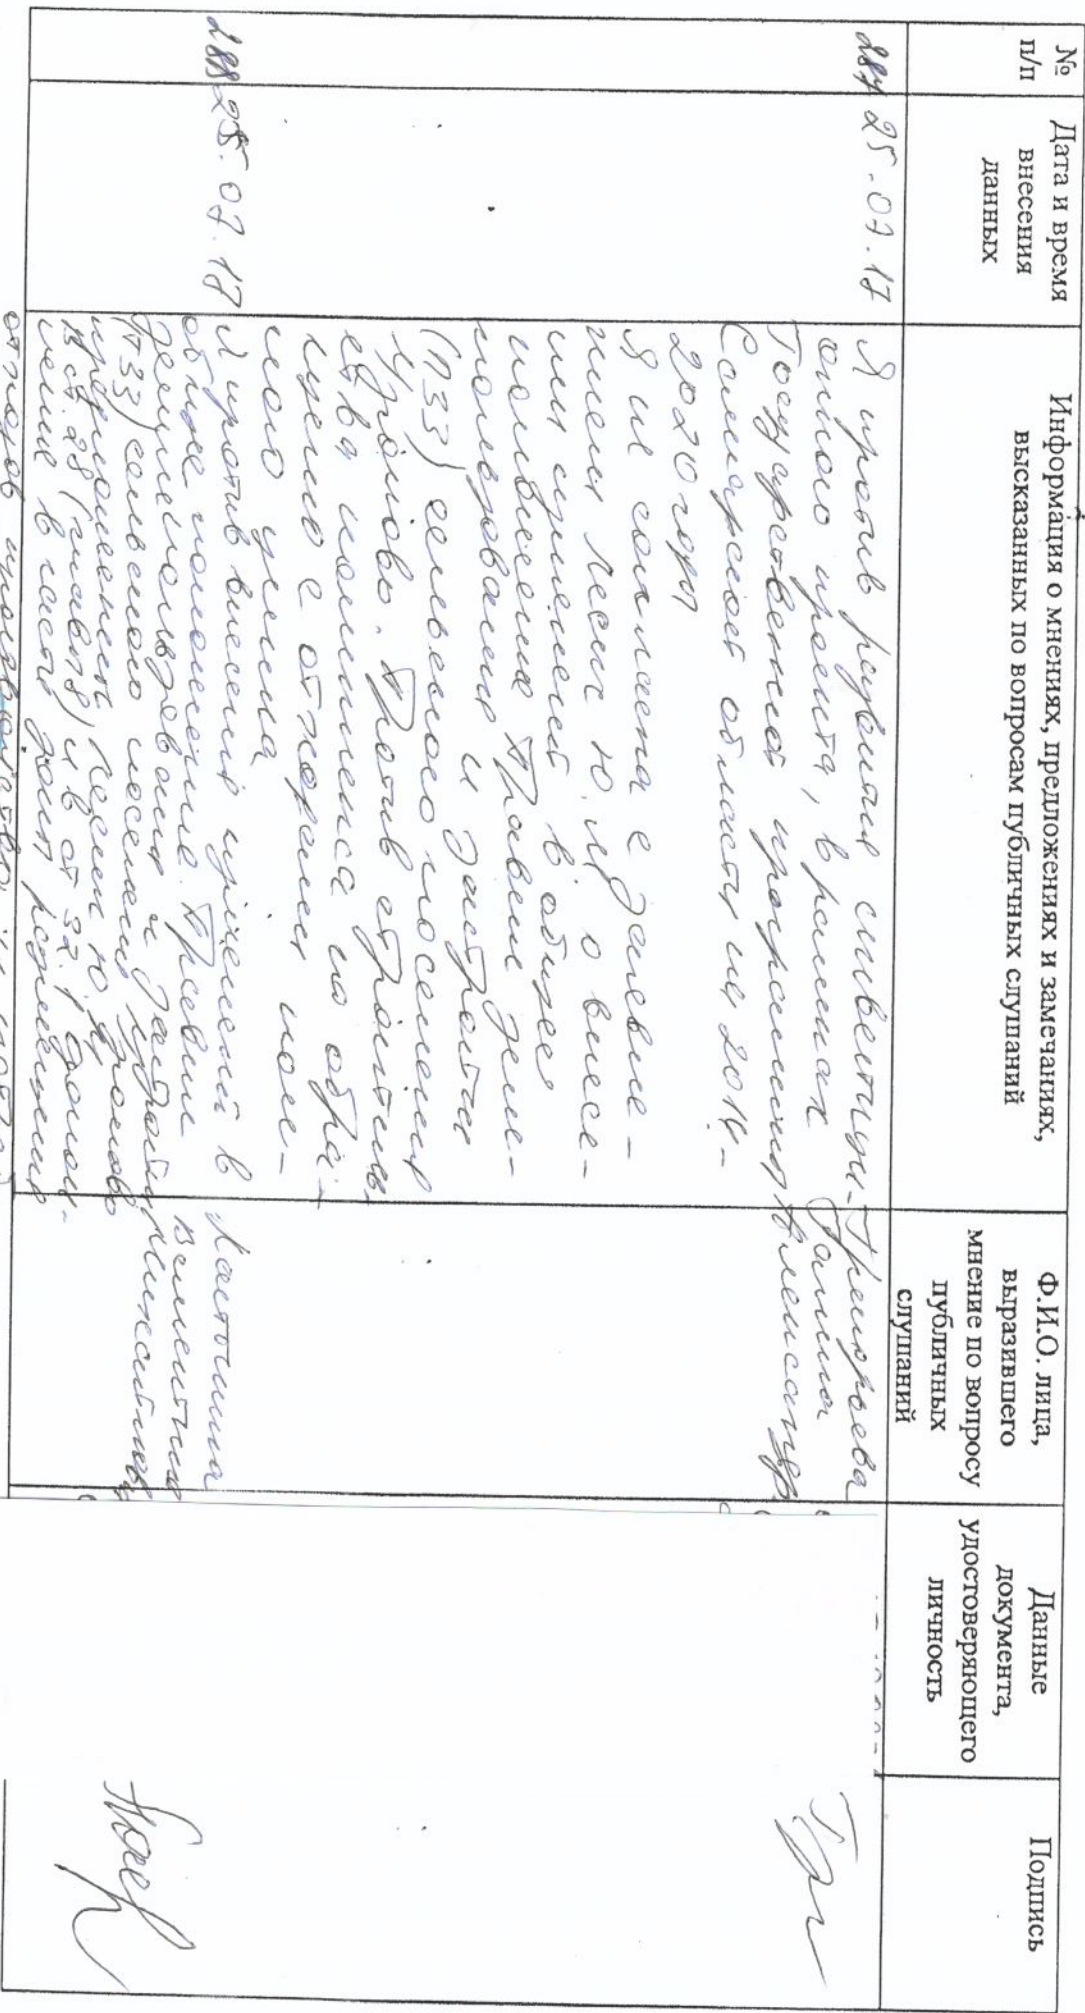 № п/п
Дата и время внесения данных
Информация о мнениях, предложениях и замечаниях, высказанных по вопросам публичных слушаний
Ф.И.О. лица, выразившего мнение по вопросу публичных слушаний
Данные документа, удостоверяющего личность
Подпись
287 25.07.17
Я против
онного проекта, в рамках
Государственной программы
Самарской области на 2014-
2020 годы
Я не согласна с заявле-
нием Лесик Ю.М. о внесе-
нии изменений в общее
положение Правил земле-
пользования и застройки
(ПЗЗ) сельского поселения
Против строитель-
ства комплекса по обра-
щению с отходами
Григорьева
Галина
288 25.07.17
Я против внесения изменений в
общее положение. Правил
землепользования и застройки
(ПЗЗ) сельского поселения
предложенных Лесик Ю.М.
в ст. 28 (глава 8) и в ст 32.1,
в части
отходов производства и
Валентина